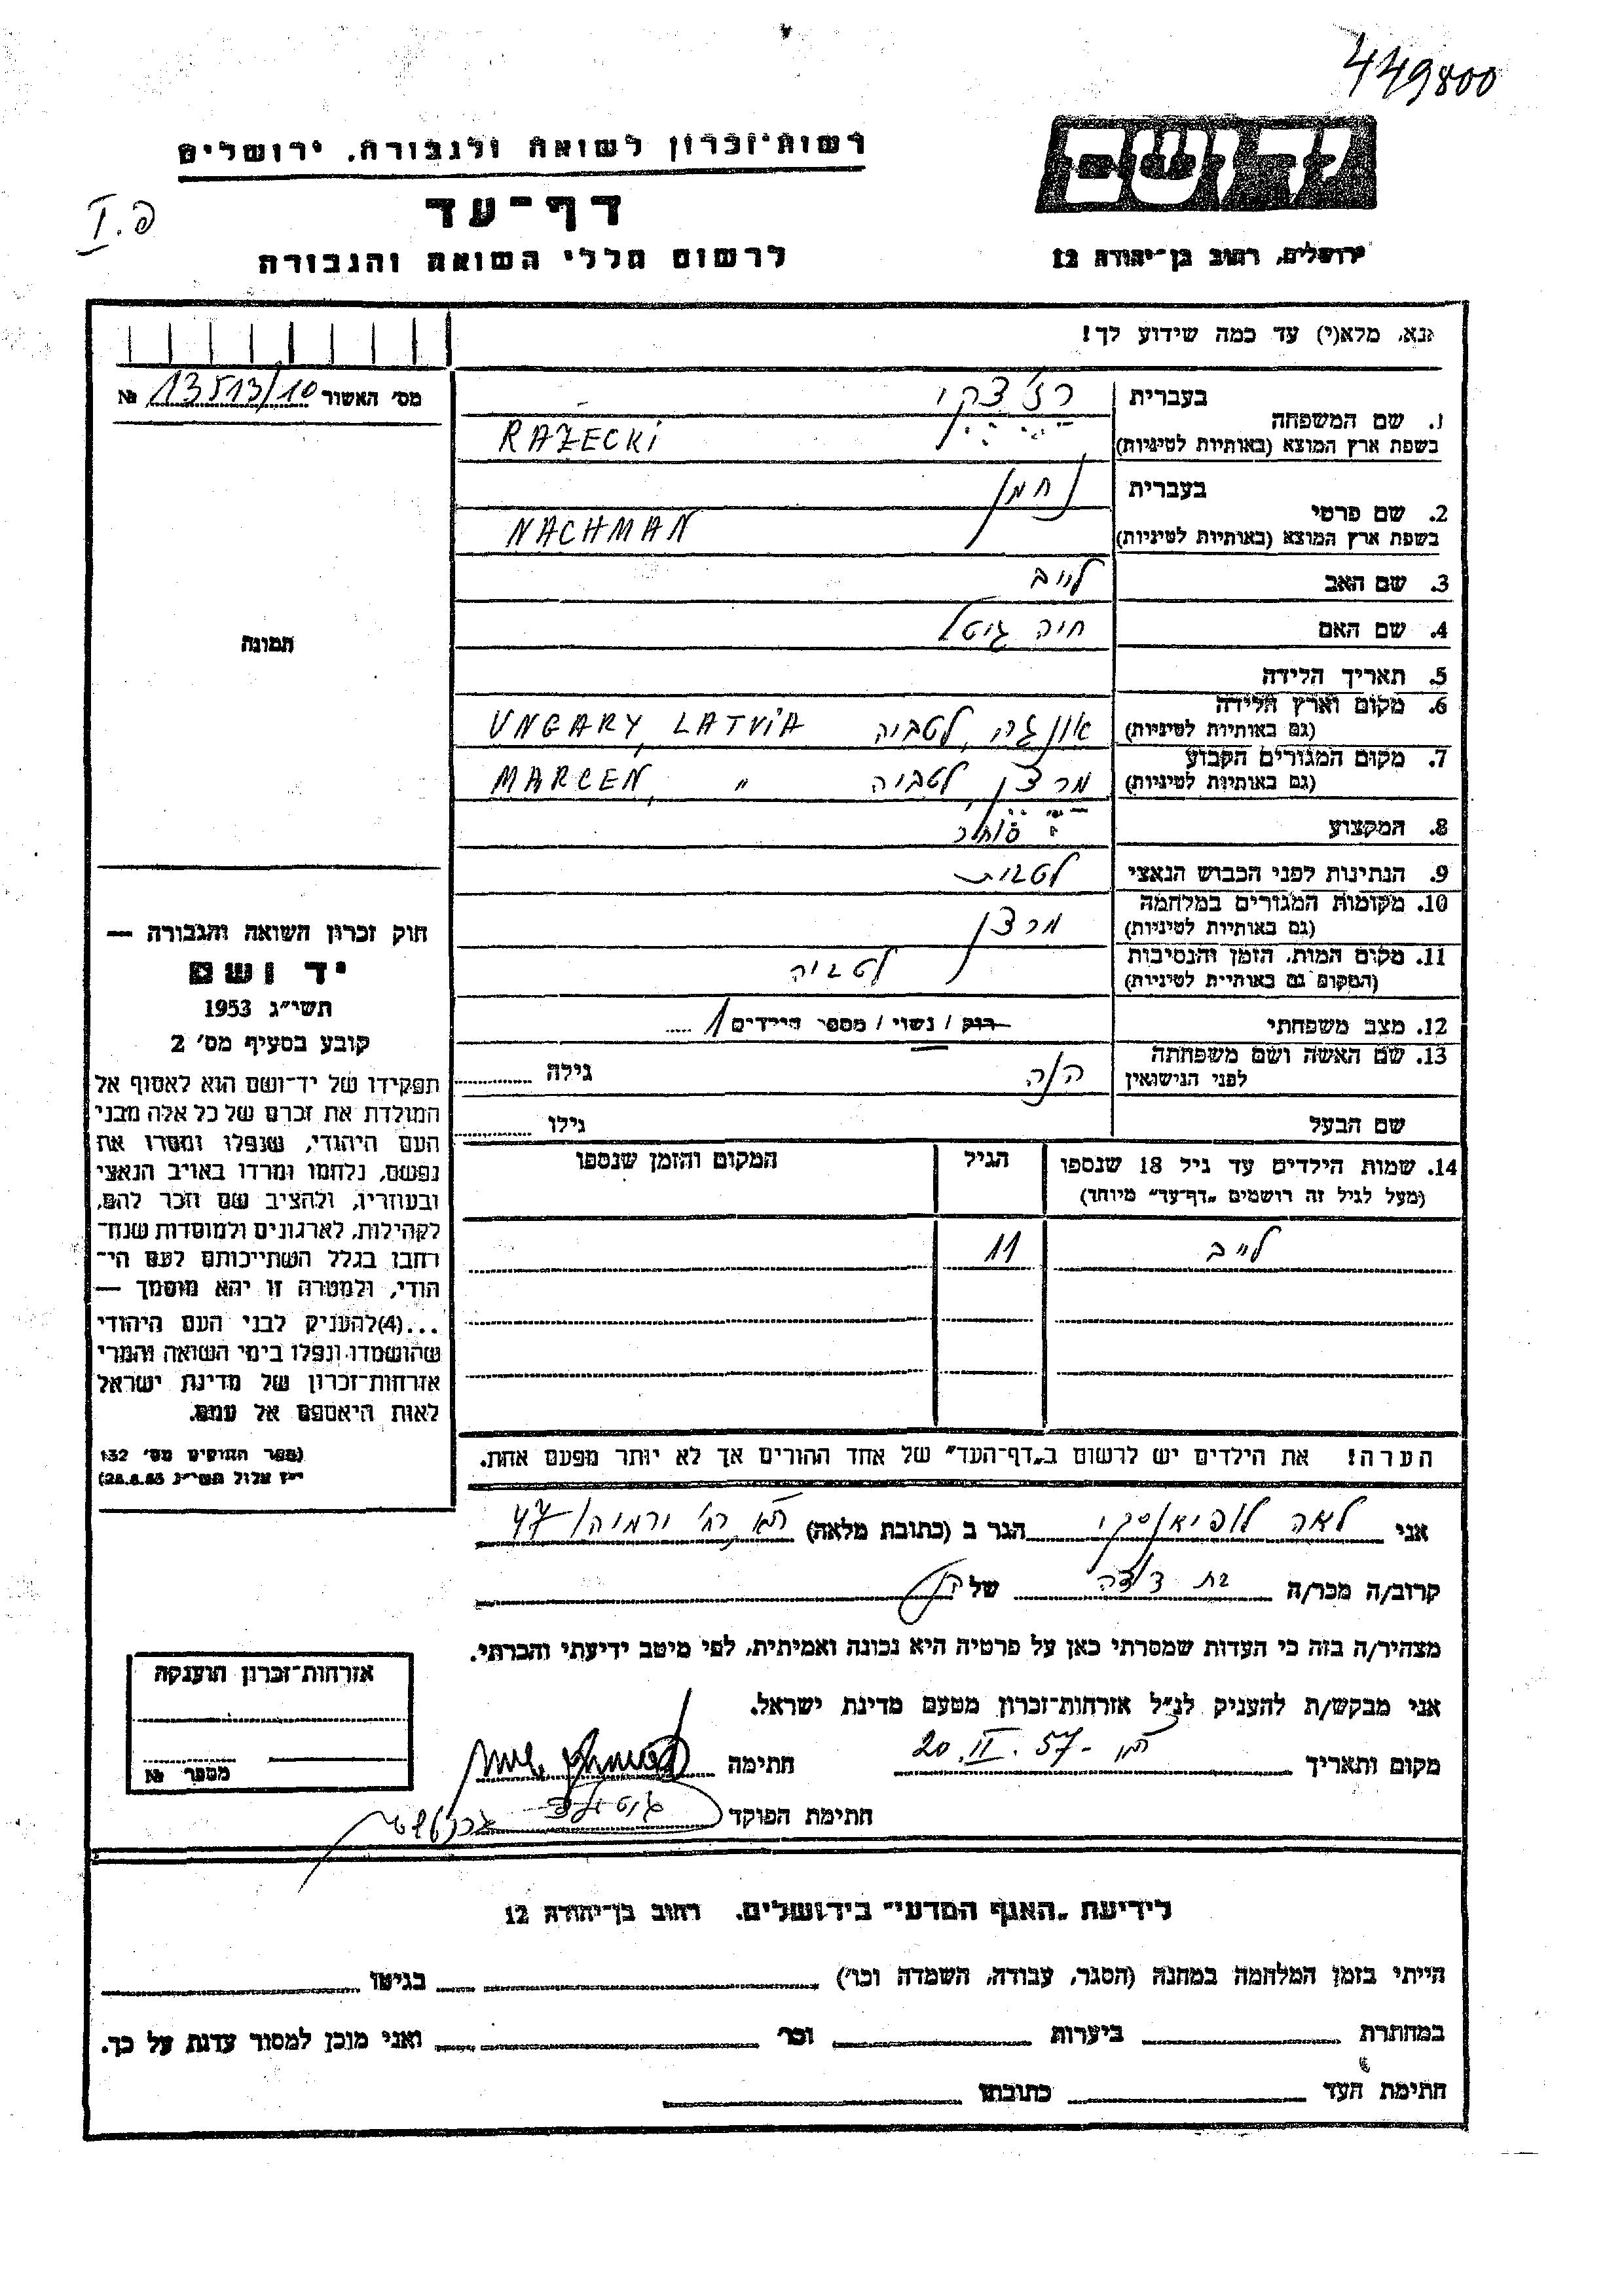 449800
רשות־זכרון לשואה ולגבורה, ירושלים
יד ושם
דף־עד
לרשום חללי השואה והגבורה
ירושלים, רחוב בן־יהודה 12
נא, מלא(י) עד כמה שידוע לך!
מס׳ האשור 13513/10 №
תמונה
1. שם המשפחה
בעברית רז׳צקי
בשפת ארץ המוצא (באותיות לטיניות) RAŻECKI
2. שם פרטי
בעברית נחמן
בשפת ארץ המוצא (באותיות לטיניות) NACHMAN
3. שם האב לייב
4. שם האם חיה גיטל
5. תאריך הלידה
6. מקום וארץ הלידה
(גם באותיות לטיניות) אונגרה, לטביה UNGARY, LATVIA
7. מקום המגורים הקבוע
(גם באותיות לטיניות) מרצן לטביה MARCEN, "
8. המקצוע סוחר
9. הנתינות לפני הכבוש הנאצי לטבית
10. מקומות המגורים במלחמה
(גם באותיות לטיניות) מרצן
11. מקום המות, הזמן והנסיבות
(המקום גם באותיות לטיניות) לטביה
12. מצב משפחתי רוק / נשוי / מספר הילדים 1
13. שם האשה ושם משפחתה
לפני הנישואין
גילה
שם הבעל גילו
14. שמות הילדים עד גיל 18 שנספו הגיל המקום והזמן שנספו
(מעל לגיל זה רושמים „דף־עד” מיוחד)
לייב 11
הערה! את הילדים יש לרשום ב„דף־העד” של אחד ההורים אך לא יותר מפעם אחת.
חוק זכרון השואה והגבורה —
יד ושם
תשי״ג 1953
קובע בסעיף מס׳ 2
תפקידו של יד־ושם הוא לאסוף אל
המולדת את זכרם של כל אלה מבני
העם היהודי, שנפלו ומסרו את
נפשם, נלחמו ומרדו באויב הנאצי
ובעוזריו, ולהציב שם וזכר להם,
לקהילות, לארגונים ולמוסדות שנח־
רחבו בגלל השתייכותם לעם הי־
הודי, ולמטרה זו יהא מוסמך —
...(4)להעניק לבני העם היהודי
שהושמדו ונפלו בימי השואה והמרי
אזרחות־זכרון של מדינת ישראל
לאות היאספם אל עמם.
(ספר החוקים מס׳ 132
י״ז אלול תשי״ג 28.8.53)
אני לאה הגר ב (כתובת מלאה) רח׳ ירמיהו 47
קרוב/ה מכר/ה בת דודה של
מצהיר/ה בזה כי העדות שמסרתי כאן על פרטיה היא נכונה ואמיתית, לפי מיטב ידיעתי והכרתי.
אני מבקש/ת להעניק לנ״ל אזרחות־זכרון מטעם מדינת ישראל.
מקום ותאריך 20.II.57 חתימה
חתימת הפוקד
אזרחות־זכרון הוענקה
מספר №
לידיעת „האגף המדעי” בירושלים. רחוב בן־יהודה 12
הייתי בזמן המלחמה במחנה (הסגר, עבודה, השמדה וכו׳) בגיטו
במחתרת ביערות וכו׳ ואני מוכן למסור עדות על כך.
חתימת העד כתובתו